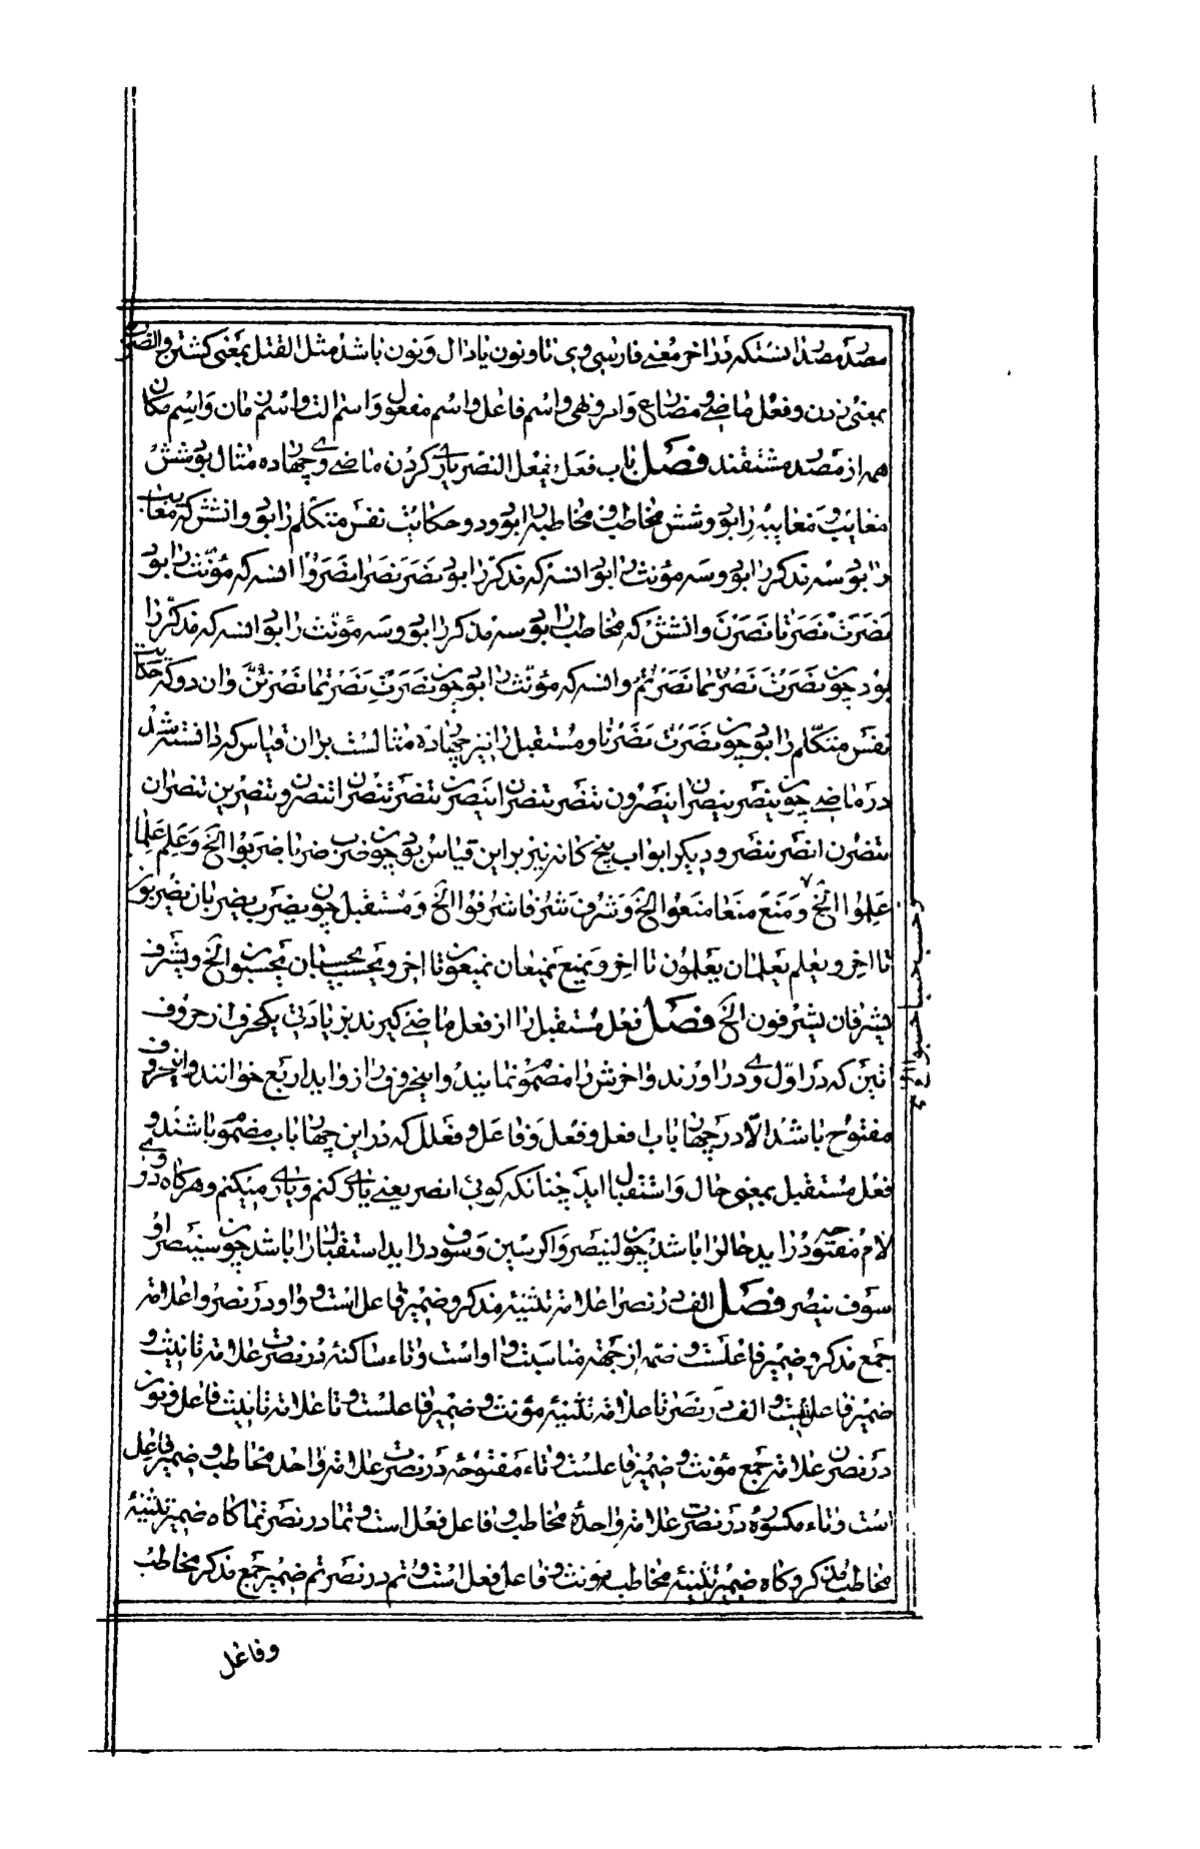 مصدر مصدر آنستکه در آخر معنی فارسی وی تا و نون یا دال و نون باشد مثل القتل بمعنی کشتن و الضرب
بمعنی زدن و فعل ماضی و مضارع و امر و نهی و اسم فاعل و اسم مفعول و اسم الت و اسم زمان و اسم مکان
همه از مصدر مشتقند فصل باب فعل یفعل النصر یاری کردن ماضی وی چهارده مثال بود شش
مغایب و مغایبه را بود و شش مخاطب و مخاطبه را بود و دو حکایت نفس متکلم را بود و آنشش که مغایب
را بود سه مذکر را بود و سه مؤنث را بود انسه که مذکر را بود نَصَرَ نَصَرا نَصَرُوا انسه که مؤنّث را بود
نَصَرَتْ نَصَرَتا نَصَرْنَ و انشش که مخاطب را بود سه مذکر را بود و سه مؤنّث را بود انسه که مذکّر را
بود چون نَصَرْتَ نَصَرْتُما نَصَرْتُم و انسه که مؤنث را بود چون نَصَرْتِ نَصَرْتُما نَصَرْتُنَّ و ان دو که حکایت
نفس متکلّم را بود چون نَصَرْتُ نَصَرْنا و مستقبل را نیز چهارده مثالست بران قیاس که دانسته شد
در ماضی چون ینصر ینصران ینصرون تنصر تنصران ینصرن تنصر تنصران تنصرون تنصرین تنصران
تنصرن انصر ننصر و دیگر ابواب پنج کانه نیز بر این قیاس بود چون ضرب ضربا ضربوا الخ و عَلِمَ عَلِما
عَلِموا الخ و مَنَعَ منعا منعوا الخ و شرف شرفا شرفوا الخ و مستقبل چون یضرب یضربان یضربون
تا اخر و یعلم یعلمان یعلمون تا اخر و یمنع یمنعان یمنعون تا اخر و یحسب یحسبان یحسبون الخ و یشرف
یشرفان یشرفون الخ فصل فعل مستقبل را از فعل ماضی گیرند بزیادتی یکحرف از حروف
اتین که در اوّل وی در اورند و اخرش را مضموم نمایند و اینحروف را زواید اربع خوانند و اینحروف
مفتوح باشد الّا در چهار باب افعل و فعل و فاعل و فعلل که در این چهار باب مضموم باشند و
فعل مستقبل بمعنی حال و استقبال اید چنانکه کوئی انصر یعنی یاری کنم و یاری میکنم و هرکاه در وی
لام مفتوحه در اید حال را باشد چون لینصر و اکر سین و سوف در اید استقبال را باشد چون سینصر او
سوف ینصر فصل الف در نصرا علامة تثنیه مذکر و ضمیر فاعل است و واو در نصروا علامة
جمع مذکر و ضمیر فاعلست و ضمه از جهة مناسبت واو است و تاء ساکنه در نصرت علامة تانیث و
ضمیر فاعل نیست و الف در نصرتا علامة تثنیه مؤنث و ضمیر فاعلست و تا علامة تانیث فاعل و نون
در نصرن علامة جمع مؤنث و ضمیر فاعلست و تاء مفتوحه در نصرت علامة واحد مخاطب و ضمیر فاعل
است و تاء مکسوره در نصرت علامة واحدهٔ مخاطب و فاعل فعل است و تما در نصرتما کاه ضمیر تثنیهٔ
مخاطب مذکر و کاه ضمیر تثنیه مخاطب مؤنث و فاعل فعل است و تم در نصرتم ضمیر جمع مذکر مخاطب
حسب حسبا حسبوا الخ
و فاعل